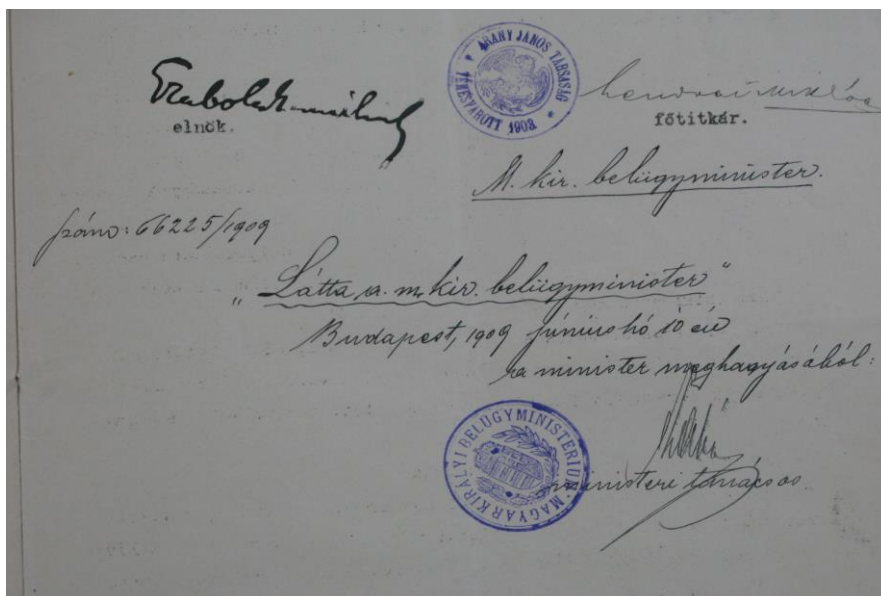 Szabolcska Mihály
elnök.
ARANY JÁNOS TÁRSASÁG
TEMESVÁROTT 1903
Lendvai Miklós
főtitkár.
M. kir. belügyminister.
szám: 66225/1909
"Látta a m. kir. belügyminister"
Budapest, 1909 június hó 10 én
a minister meghagyásából:
MAGYAR KIRÁLYI BELÜGYMINISTERIUM
ministeri tanácsos